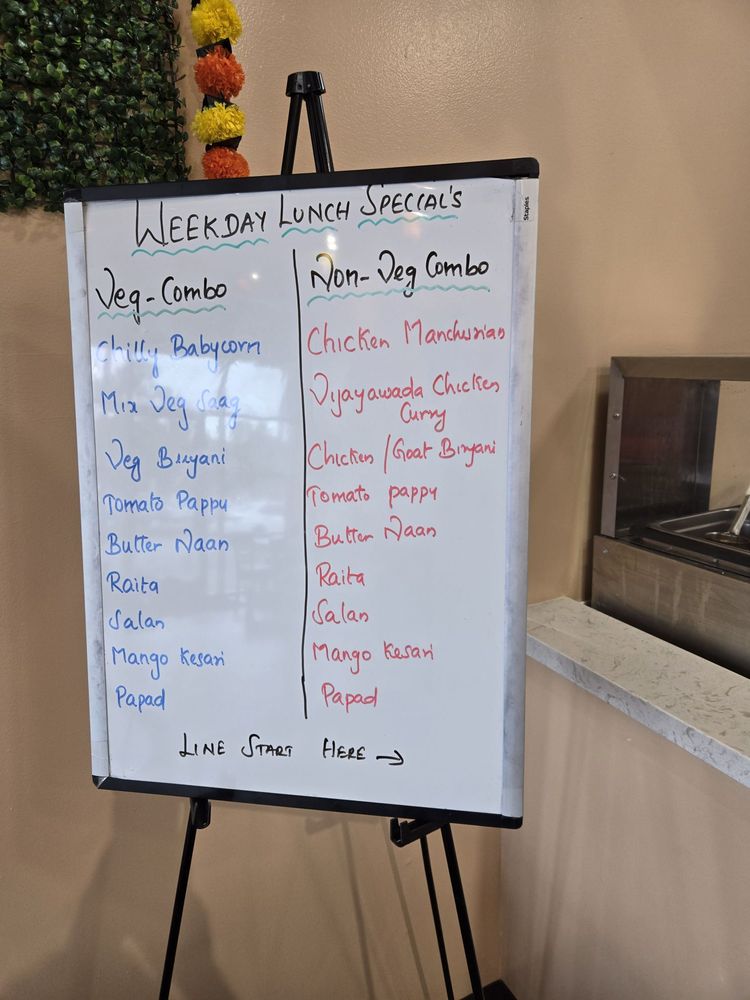 WEEKDAY LUNCH SPECIAL'S
Veg-Combo
Chilly Babycorn
Mix Veg Saag
Veg Biryani
Tomato Pappu
Butter Naan
Raita
Salan
Mango Kesari
Papad
Non-Veg Combo
Chicken Manchurian
Vijayawada Chicken
Curry
Chicken / Goat Biryani
Tomato pappu
Butter Naan
Raita
Salan
Mango Kesari
Papad
LINE START HERE →
Staples